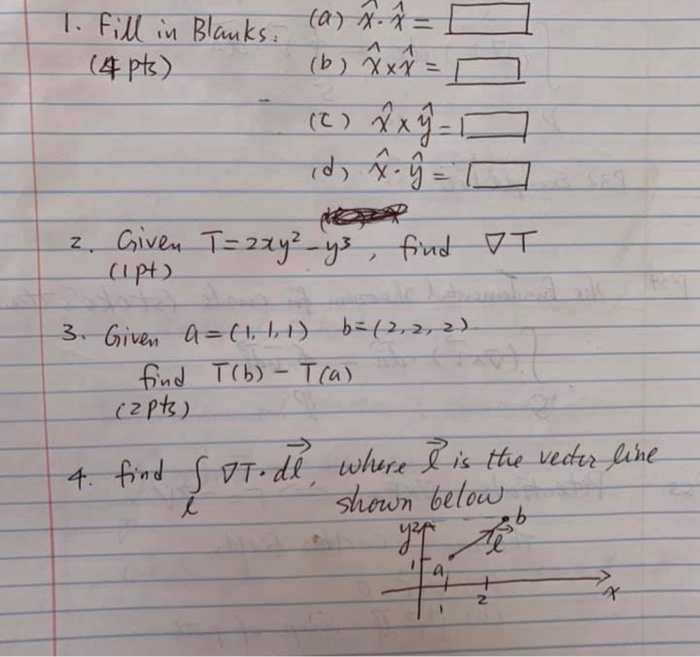 1. Fill in Blanks. (a) x̂·x̂ =
(4 pts) (b) x̂×x̂ =
(c) x̂×ŷ =
(d) x̂·ŷ =
2. Given T=2xy²-y³, find ∇T
(1pt)
3. Given a=(1,1,1) b=(2,2,2)
find T(b) - T(a)
(2pts)
4. find ∫ₗ ∇T·dl⃗, where l⃗ is the vector line
shown below
y 2 b
l⃗
1 a
1 2 x